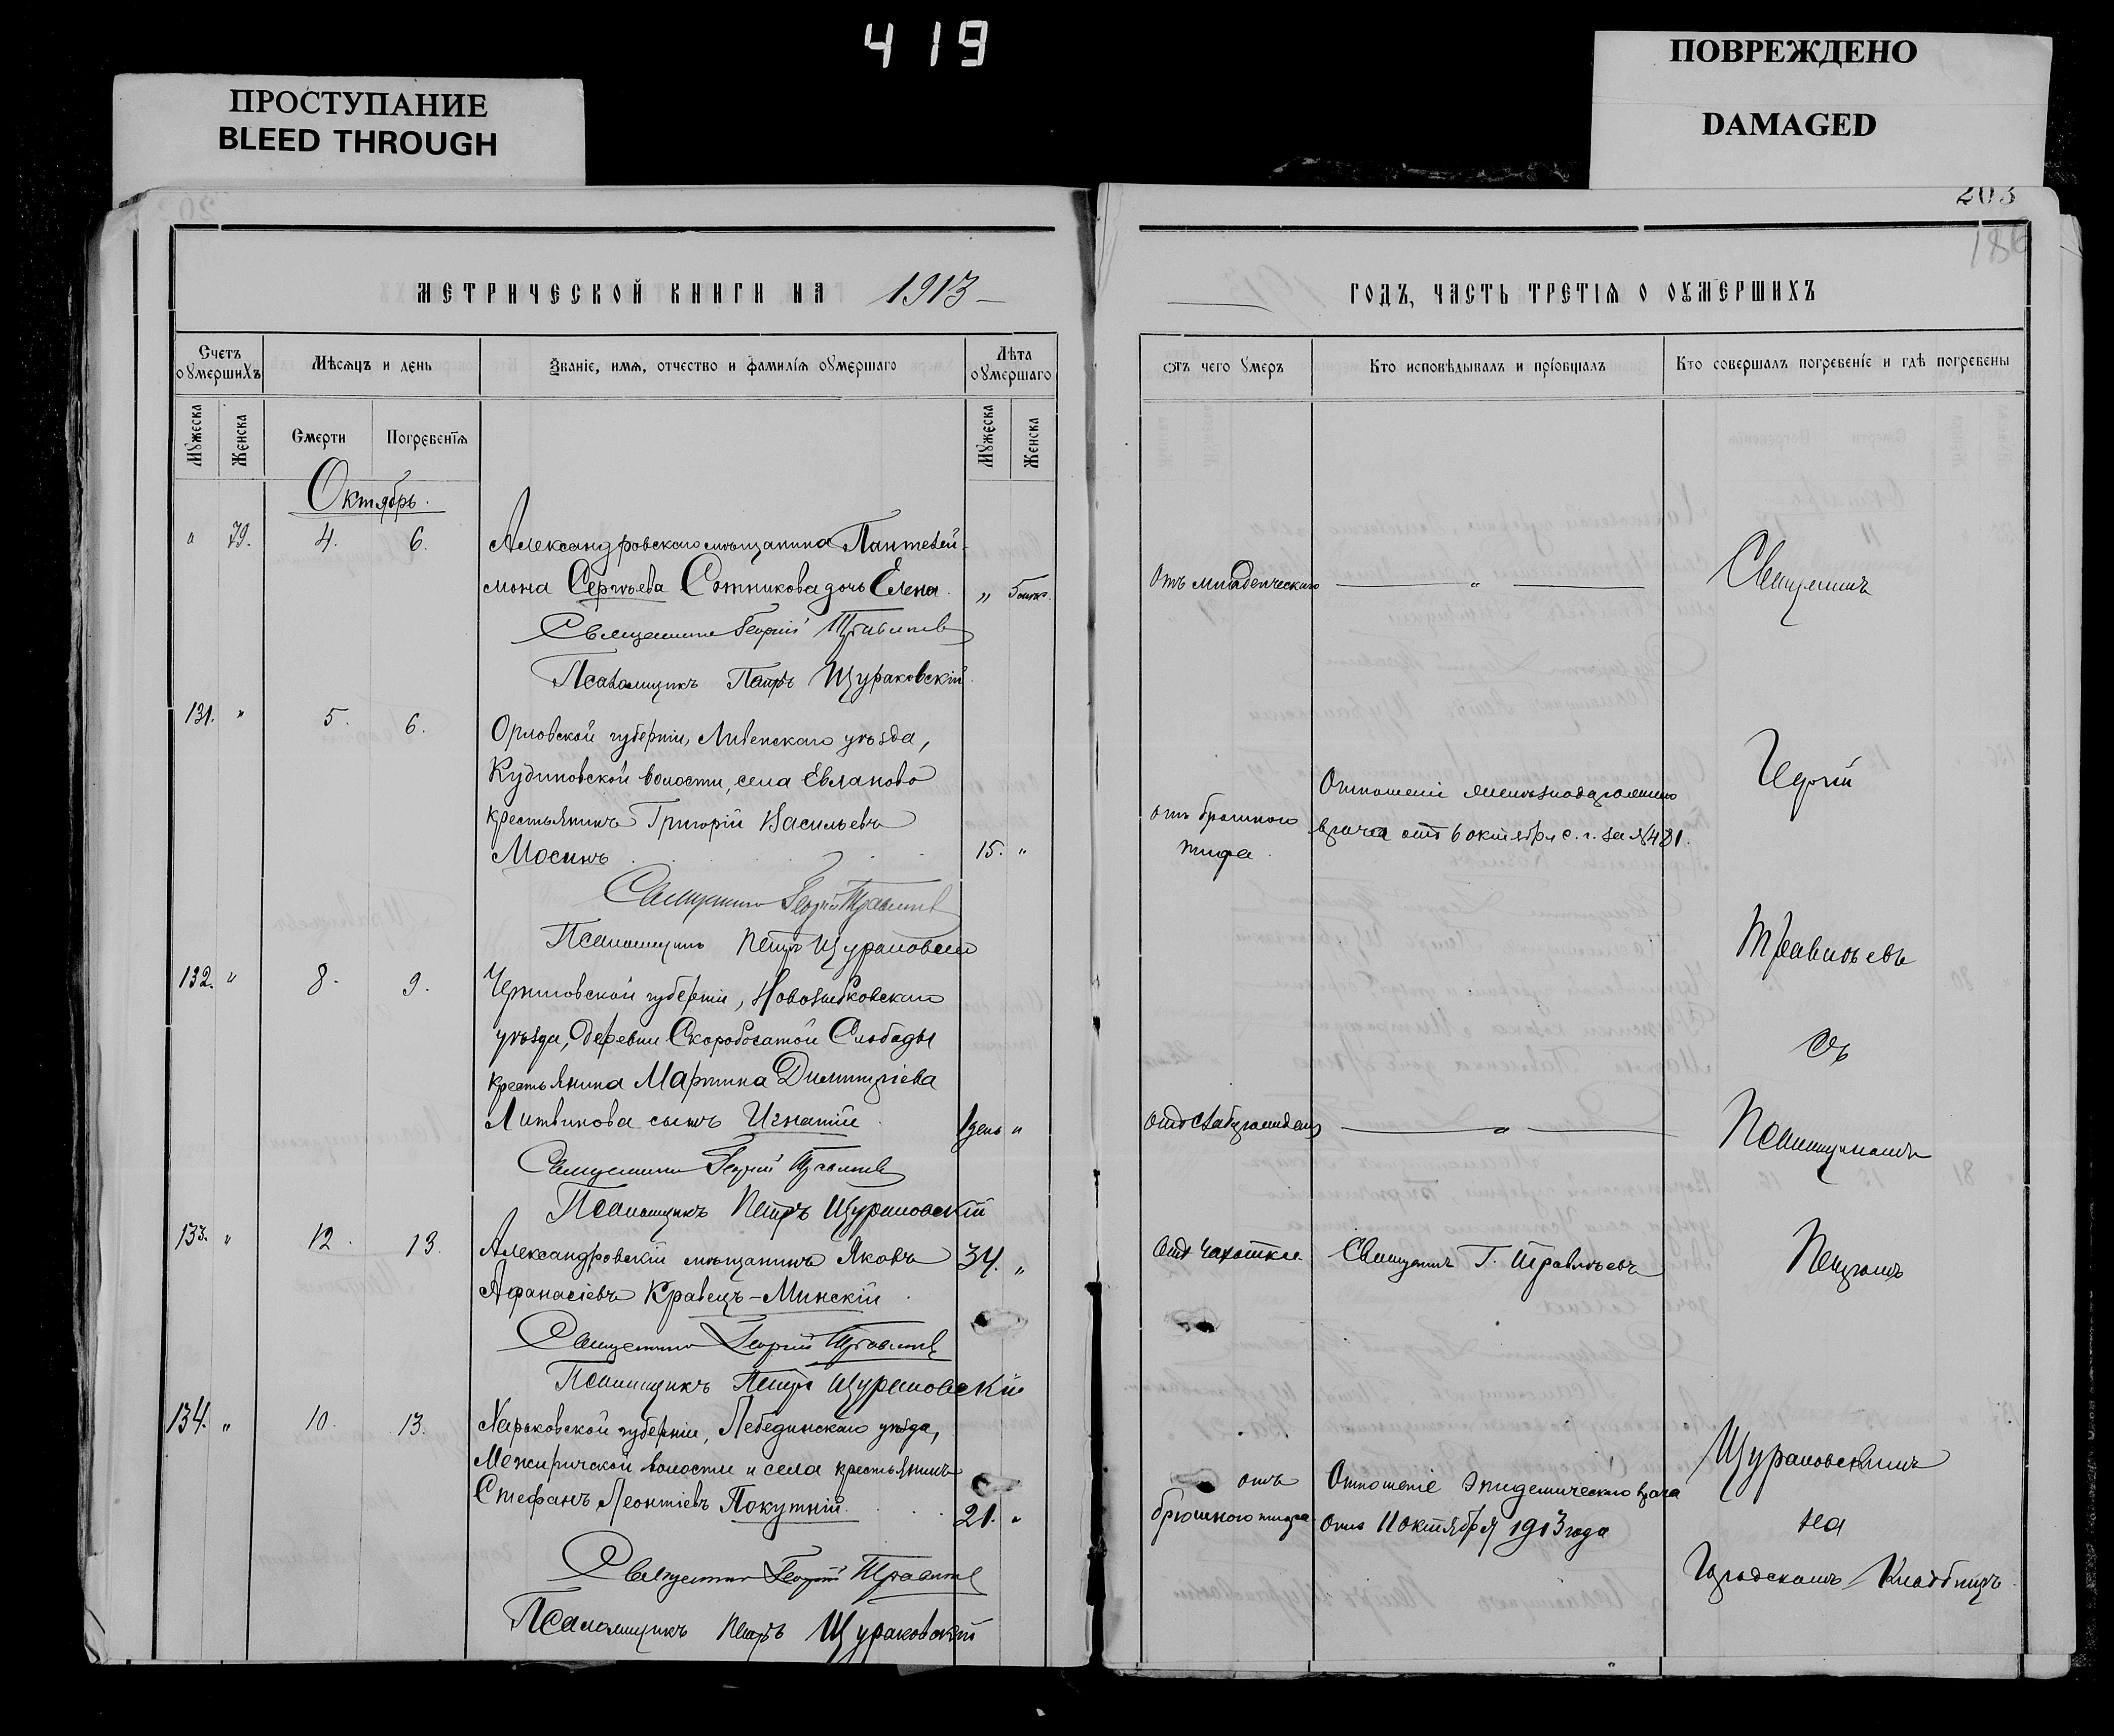 419
ПРОСТУПАНИЕ
BLEED THROUGH
ПОВРЕЖДЕНО
DAMAGED
203
186
МЕТРИЧЕСКОЙ КНИГИ НА 1913
ГОДЪ, ЧАСТЬ ТРЕТІЯ О ОУМЕРШИХЪ
Счетъ оумершихъ
Мѣсяцъ и день
Званіе, имя, отчество и фамилія оумершаго
Лѣта оумершаго
Отъ чего умеръ
Кто исповѣдывалъ и пріобщалъ
Кто совершалъ погребеніе и гдѣ погребены
Мужеска
Женска
Смерти
Погребенія
Мужеска
Женска
Октябрь.
" 79. 4. 6. Александровскаго мѣщанина Пантелей-
мона Сергѣева Сотникова дочь Елена. "
отъ младенческаго "
Священникъ
Священникъ Георгій Травлѣевъ
Псаломщикъ Петръ Щураковскій
131. " 5. 6. Орловской губерніи, Ливенскаго уѣзда,
Кудиновской волости, села Евланово
крестьянинъ Григорій Васильевъ
Мосинъ 15. "
отъ брюшного
тифа.
Отношеніе желѣзнодорожнаго
врача отъ 6 октября с. г. за №481.
Георгій
Священникъ Георгій Травлѣевъ
Псаломщикъ Петръ Щураковскій
Травлѣевъ
132. " 8. 9. Черниговской губерніи, Новозыбковскаго
уѣзда, деревни Скоробогатой Слободы
крестьянина Мартина Димитріева
Литвинова сынъ Игнатій. 1 день "
отъ слаборожденія "
съ
Псаломщикомъ
Священникъ Георгій Травлѣевъ
Псаломщикъ Петръ Щураковскій
133. " 12. 13. Александровскій мѣщанинъ Яковъ 34. "
Афанасіевъ Кравецъ-Минскій.
отъ чахотки Священникъ Г. Травлѣевъ
Петромъ
Священникъ Георгій Травлѣевъ
Псаломщикъ Петръ Щураковскій
134. " 10. 13. Харьковской губерніи, Лебединскаго уѣзда,
Межиричской волости и села крестьянинъ
Стефанъ Леонтіевъ Покутній. 21. "
отъ
брюшного тифа
Отношеніе эпидемическаго врача
отъ 11 октября 1913 года
Щураковскимъ
на
Городскомъ Кладбищѣ.
Священникъ Георгій Травлѣевъ
Псаломщикъ Петръ Щураковскій